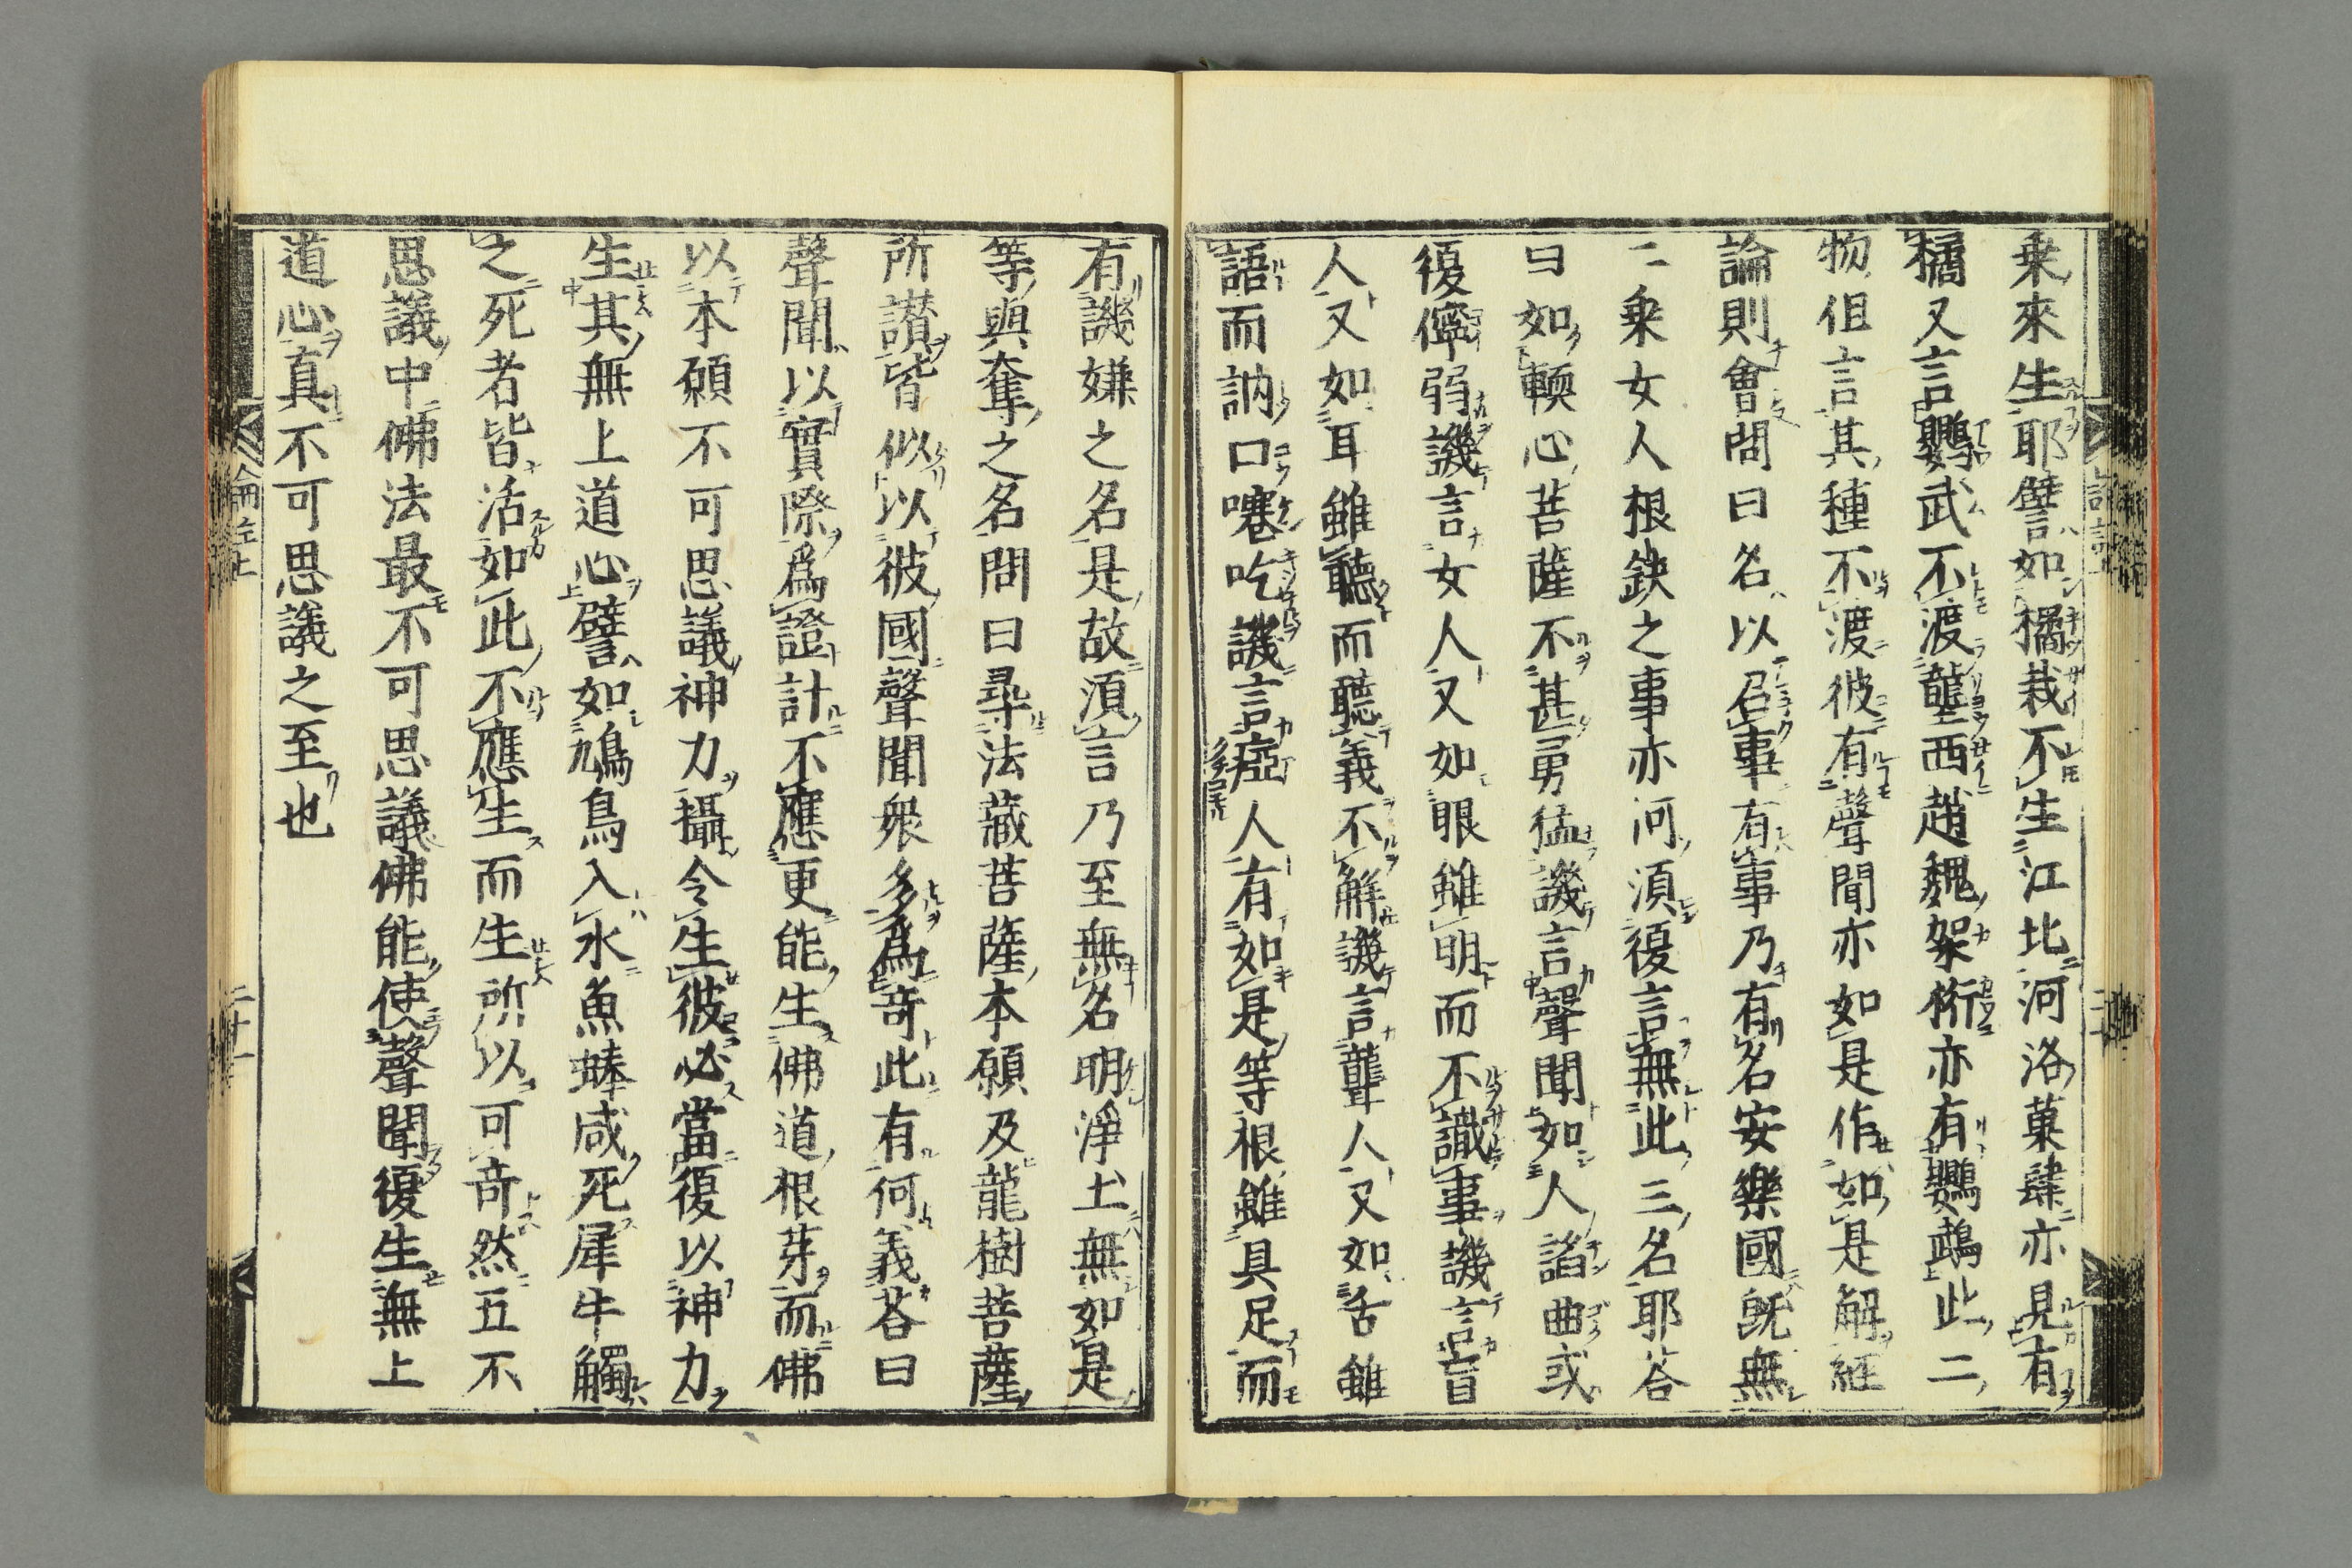 乗來生耶譬如橘栽不生江北河洛菓肆亦見有
橘又言鸚武不渡壟西趙魏架桁亦有鸚鵡此二
物但言其種不渡彼有聲聞亦如是作如是解經
論則會問曰名以召事有事乃有名安樂國旣無
二乗女人根鈌之事亦何湏復言無此三名耶荅
曰如輭心菩薩不甚勇猛譏言聲聞如人諂曲或
復儜弱譏言女人又如眼雖明而不識事譏言盲
人又如耳雖聽而聽義不解譏言聾人又如舌雖
語而訥口噻吃譏言瘂人有如是等根雖具足而
有譏嫌之名是故湏言乃至無名明淨土無如是
等與奪之名問曰尋法藏菩薩本願及龍樹菩薩
所讃皆似以彼國聲聞衆多爲竒此有何義荅曰
聲聞以實際爲證計不應更能生佛道根芽而佛
以本願不可思議神力攝令生彼必當復以神力
生其無上道心譬如鴆鳥入水魚蜯咸死犀牛觸
之死者皆活如此不應生而生所以可竒然五不
思議中佛法最不可思議佛能使聲聞復生無上
道心真不可思議之至也
論註上
二十一